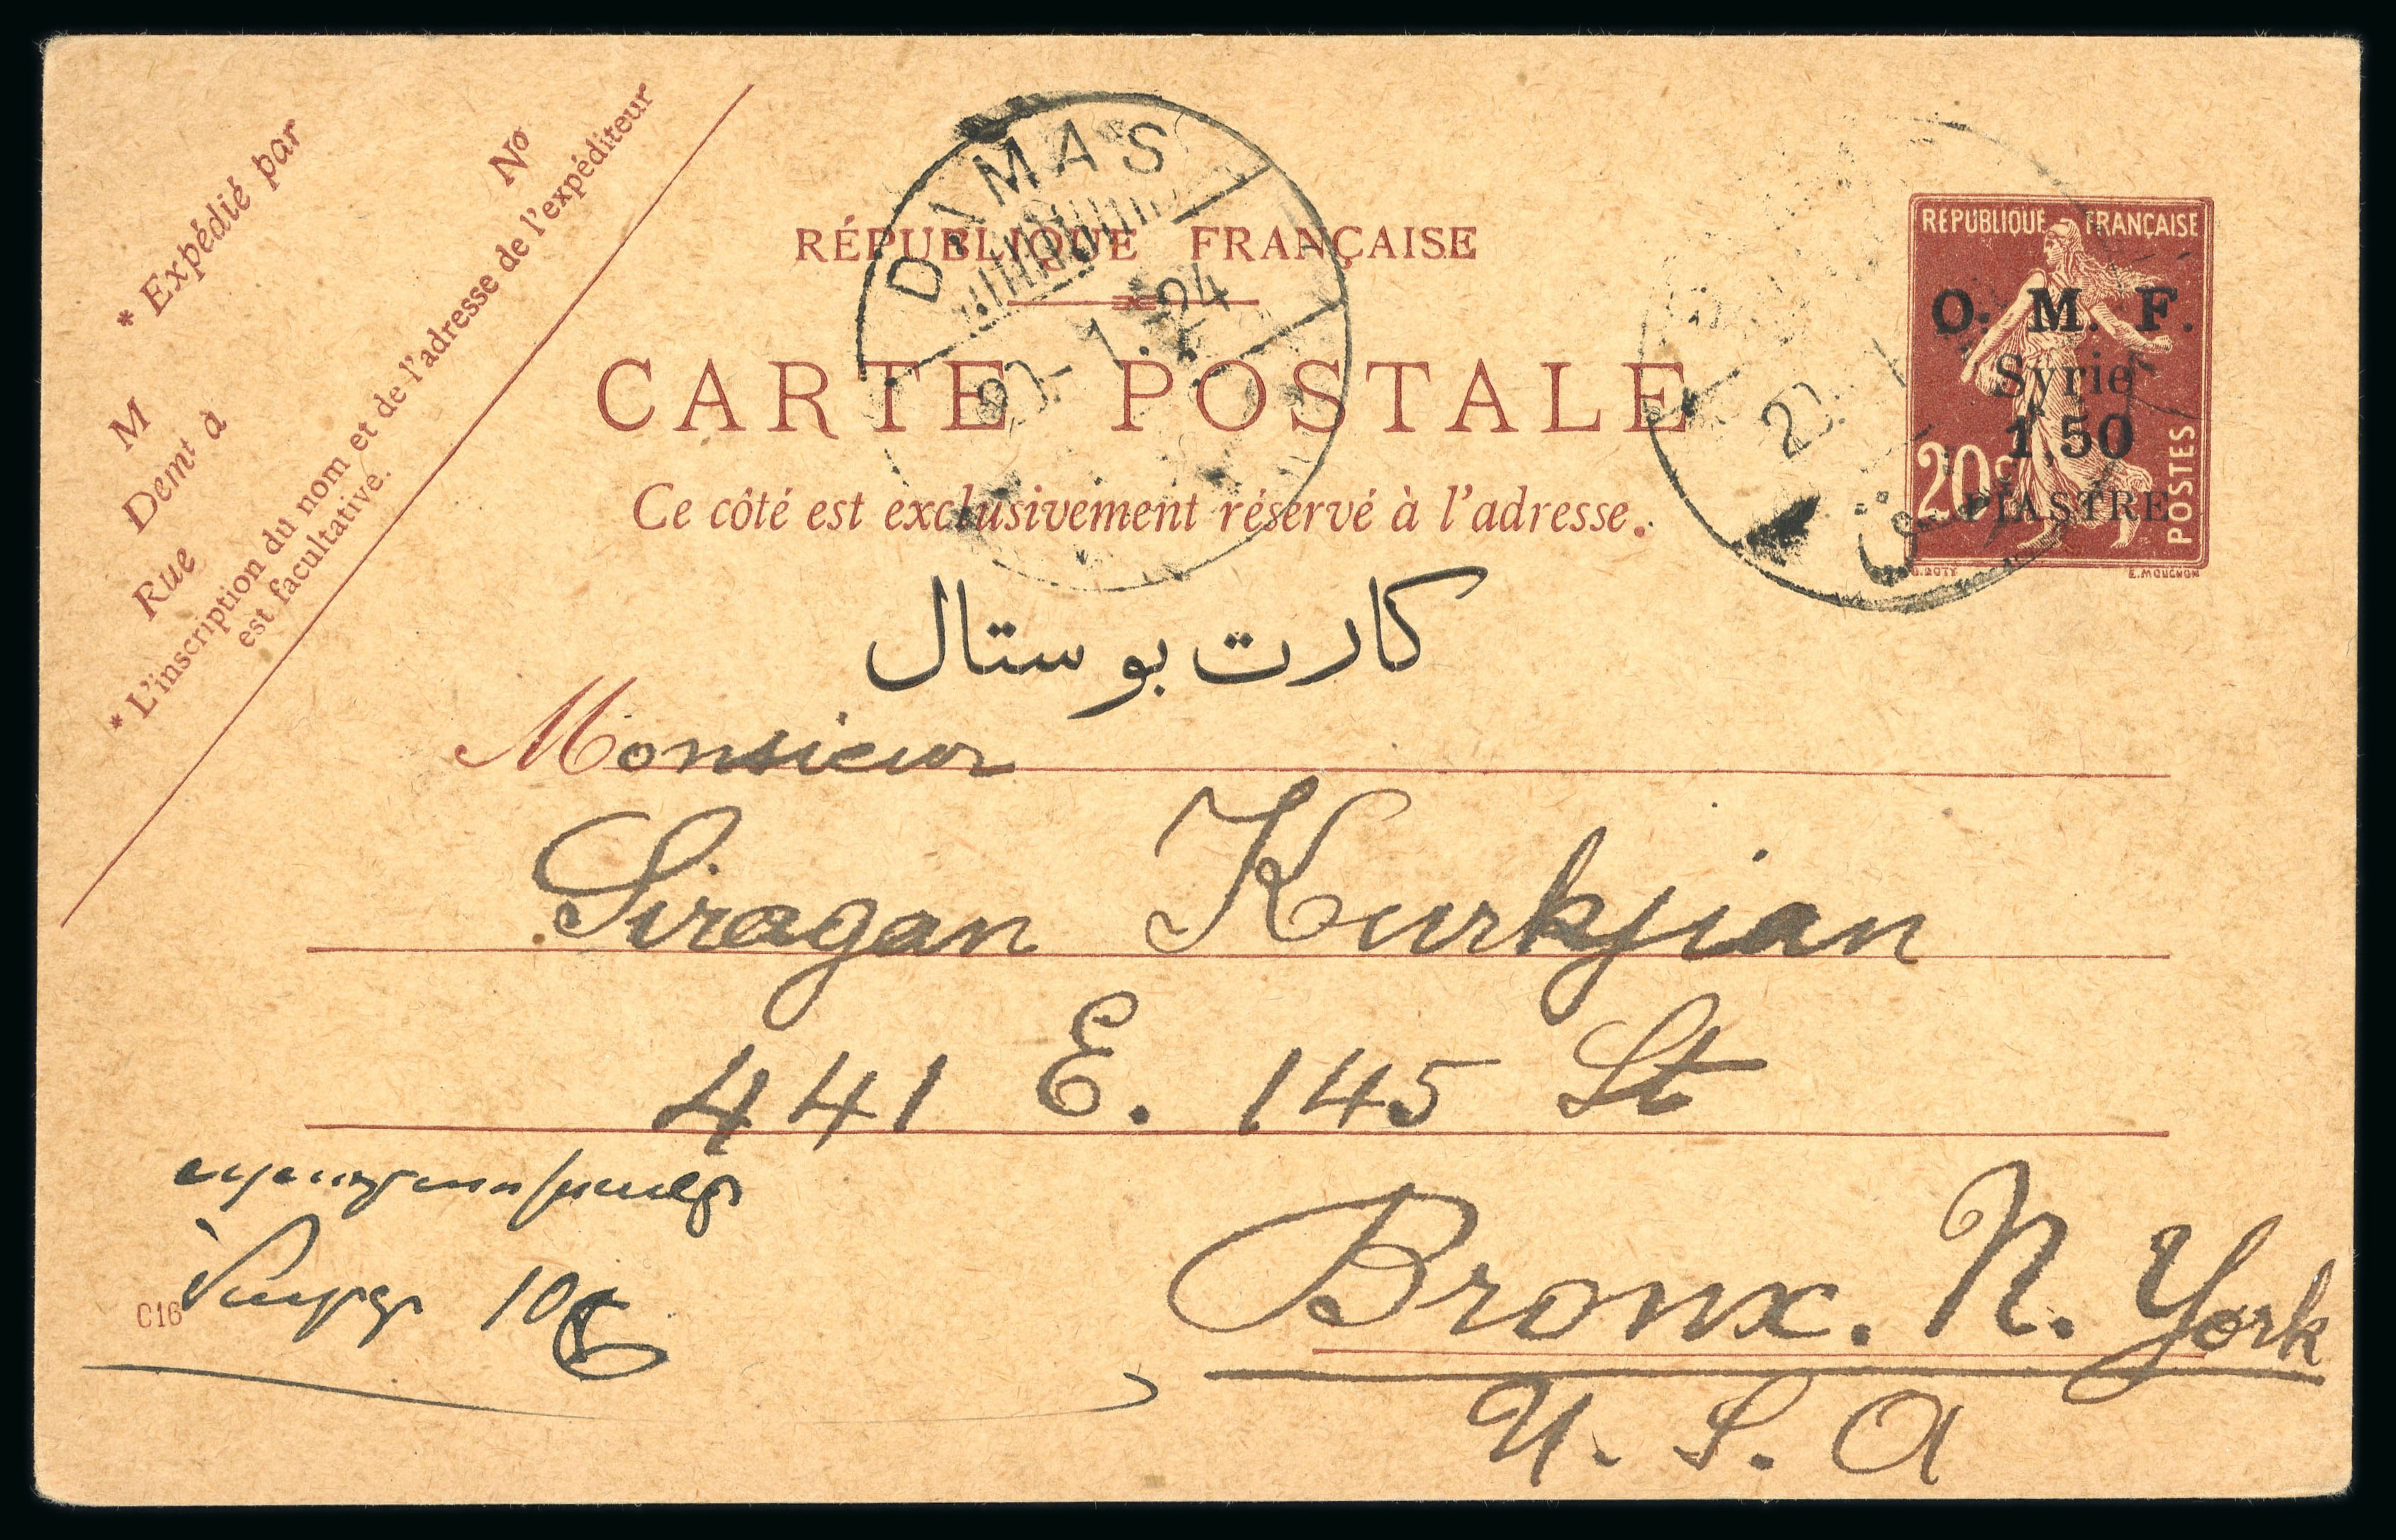 * Expédié par
No
M
Demt à
Rue
* L'inscription du nom et de l'adresse de l'expéditeur
est facultative.
DAMAS
1.24
RÉPUBLIQUE FRANÇAISE
CARTE POSTALE
Ce côté est exclusivement réservé à l'adresse.
كارت بوستال
RÉPUBLIQUE FRANÇAISE
O. M. F.
Syrie
1.50
PIASTRE
20c
POSTES
O.ROTY
E.MOUCHON
Monsieur
Siragan Kurkjian
441 E. 145 St
Bronx. N. York
U. S. A
C16